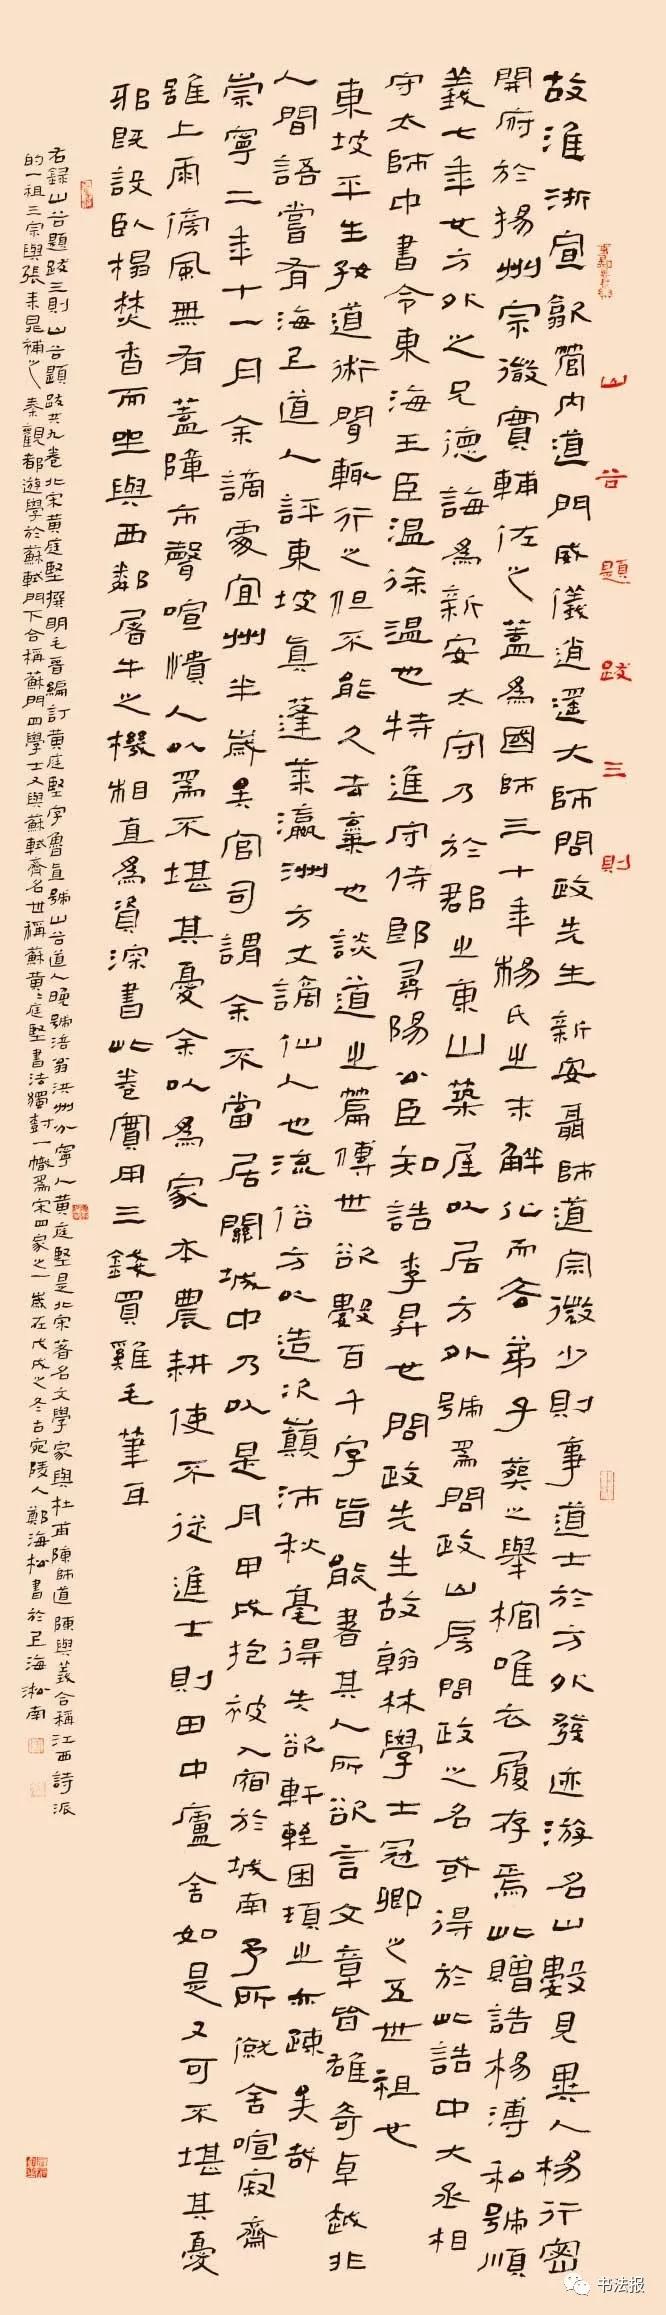 山谷題跋三則
故淮浙宣歙管內道門威儀逍遙大師問政先生新安聶師道宗微少則事道士於方外發迹游名山數見異人楊行密
開府於揚州宗微實輔佐之蓋為國師三十年楊氏之末解化而去弟子葬之舉棺唯衣履存焉此贈誥楊溥私號順
義七年也方外之兄德誨為新安太守乃於郡之東山築屋以居方外號為問政山房問政之名或得於此誥中大丞相
守太師中書令東海王臣溫徐溫也特進守侍郎尋陽公臣知誥李昇也問政先生故翰林學士冠卿之五世祖也
東坡平生好道術聞輒行之但不能久去棄也談道之篇傳世欲數百千字皆能書其人所欲言文章皆雄奇卓越非
人間語嘗有海上道人評東坡真蓬萊瀛洲方丈謫仙人也流俗方以造次顛沛秋毫得失欲軒輊困頓之亦疎矣哉
崇寧二年十一月余謫處宜州半歲矣官司謂余不當居關城中乃以是月甲戌抱被入宿於城南予所僦舍喧寂齋
雖上雨傍風無有蓋障市聲喧憒人以為不堪其憂余以為家本農耕使不從進士則田中廬舍如是又可不堪其憂
邪既設臥榻焚香而坐與西鄰屠牛之機相直為資深書此卷實用三錢買雞毛筆耳
右錄山谷題跋三則山谷題跋共九卷北宋黃庭堅撰明毛晉編訂黃庭堅字魯直號山谷道人晚號涪翁洪州分寧人黃庭堅是北宋著名文學家與杜甫陳師道陳與義合稱江西詩派
的一祖三宗與張耒晁補之秦觀都遊學於蘇軾門下合稱蘇門四學士又與蘇軾齊名世稱蘇黃〻庭堅書法獨樹一幟為宋四家之一歲在戊戌之冬古宛陵人鄭海松書於上海淞南
书法报